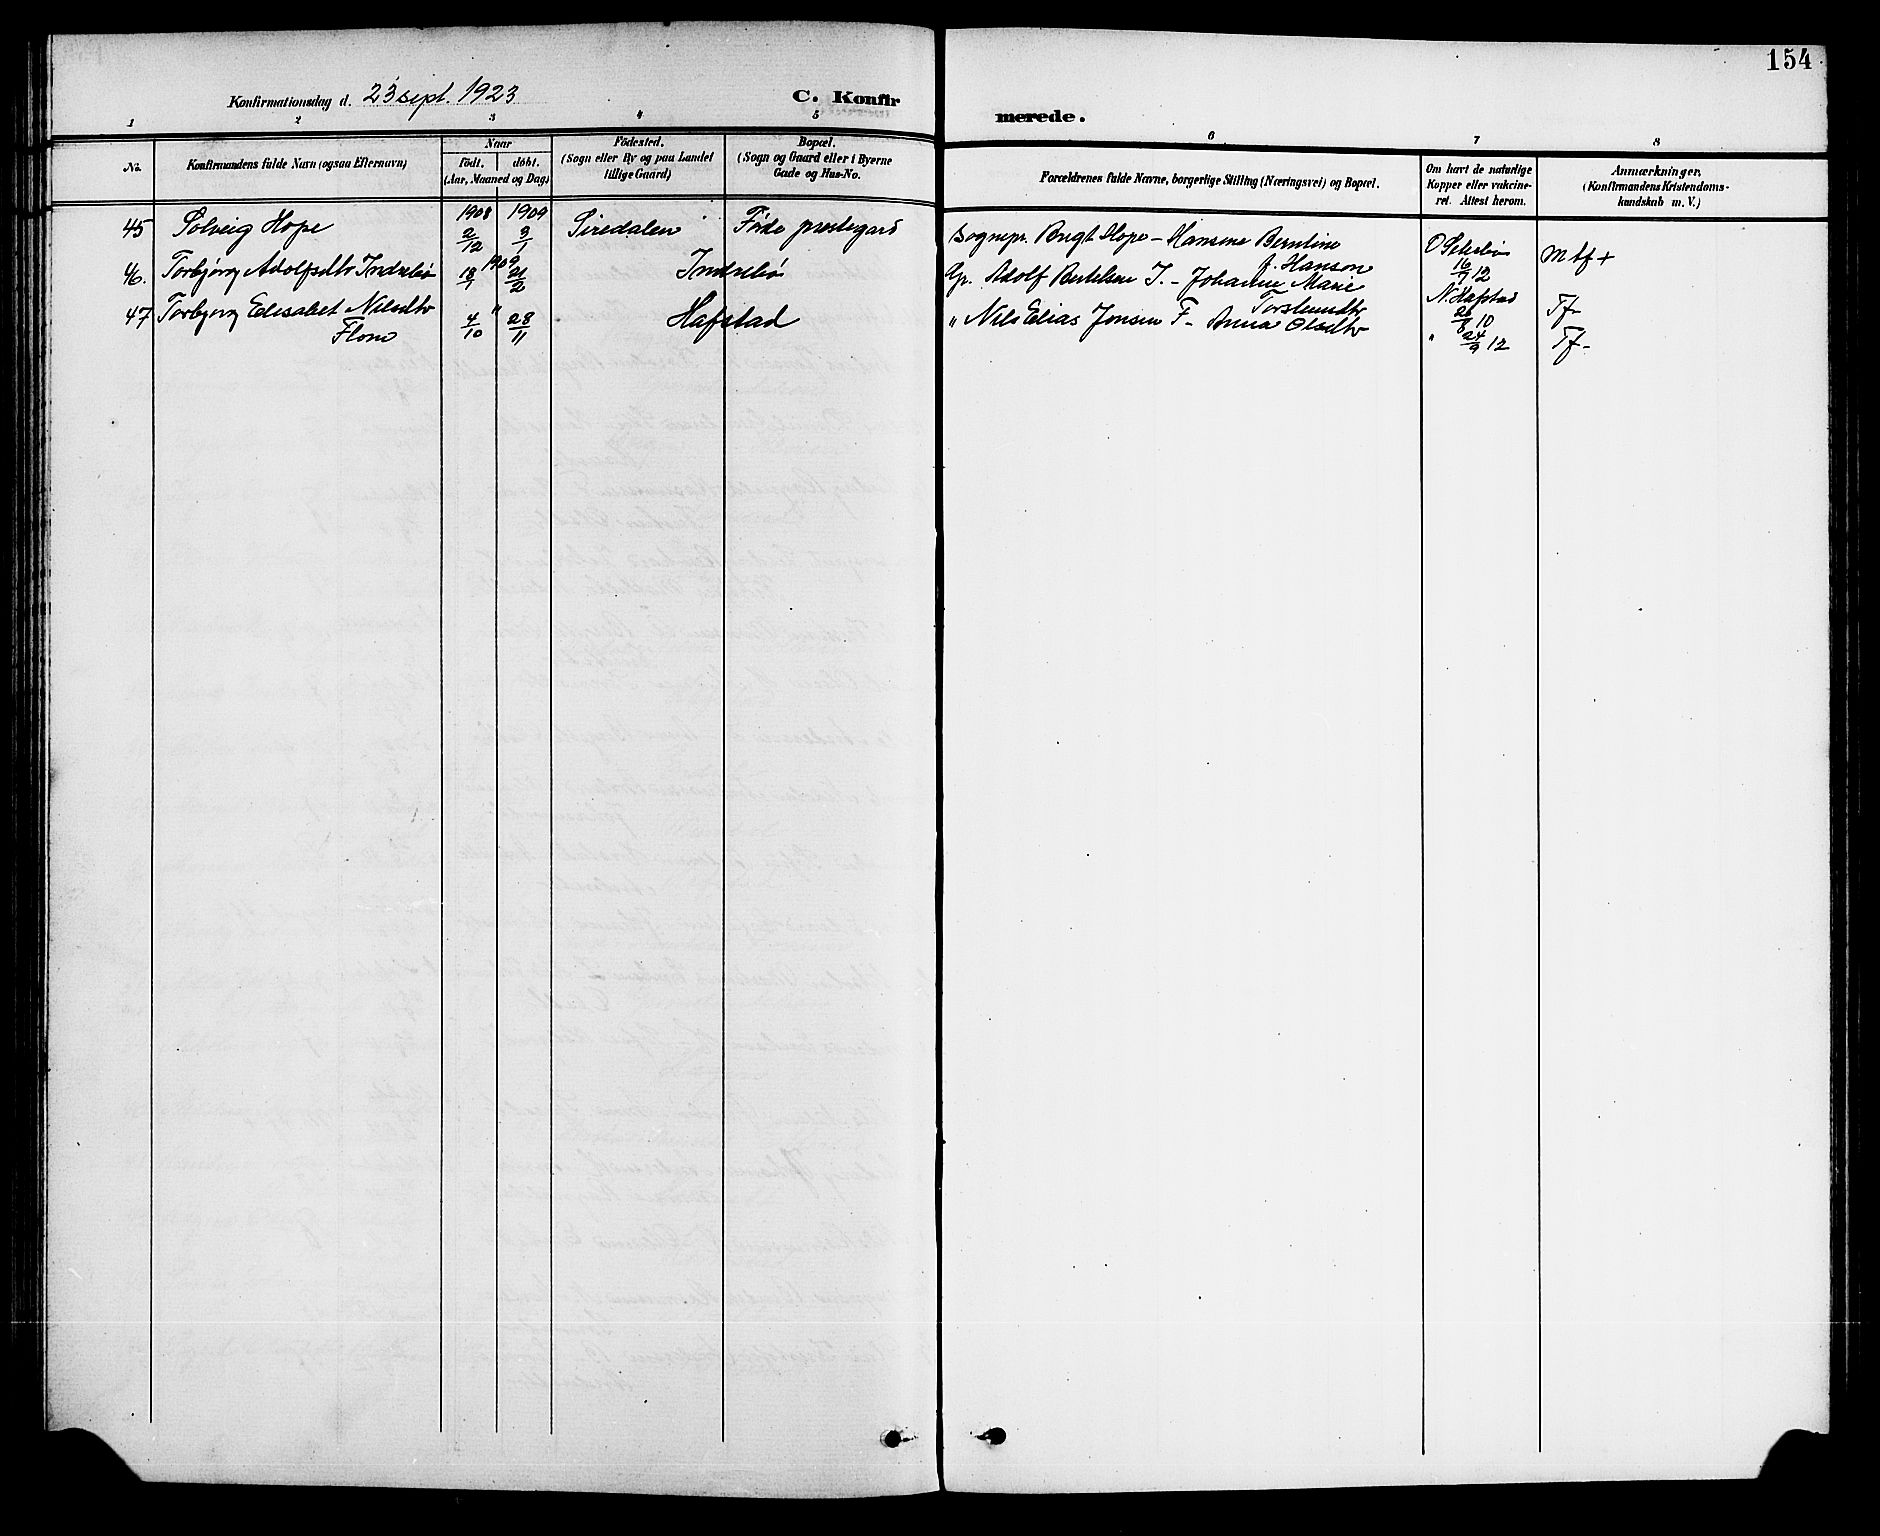 154
Konfirmationsdag d. 23 sept. 1923
C. Konfirmerede.
1 2 3 4 5 6 7 8
No.
Konfirmandens fulde Navn (ogsaa Efternavn)
Naar
født. døbt.
(Aar, Maaned og Dag)
Fødested.
(Sogn eller By og paa Landet
tillige Gaard)
Bopæl.
(Sogn og Gaard eller i Byerne
Gade og Hus-No.
Forældrenes fulde Navne, borgerlige Stilling (Næringsvei) og Bopæl.
Om havt de naturlige
Kopper eller vakcine-
ret. Attest herom.
Anmærkninger,
(Konfirmandens Kristendoms-
kundskab m. V.)
1908 1909
45 Solveig Hope 2/12 3/1 Siredalen Førde prestegard Sognepr. Bngt Hope - Hansine Berntine
f. Hanson
16/7 12 Mtf+
1909
46. Torbjørg Adolfsdtr Indrebø 18/1 21/2 Indrebø Gp. Adolf Bertelsen I. - Johanne Marie
Torsteindtr
N. Hafstad
26/8 10 Tf-
47 Torbjørg Elisabet Nilsdtr " 4/10 28/11 Hafstad " Nils Elias Jonsen F - Anna Olsdtr
Flone
" 24/9 12 Tf-